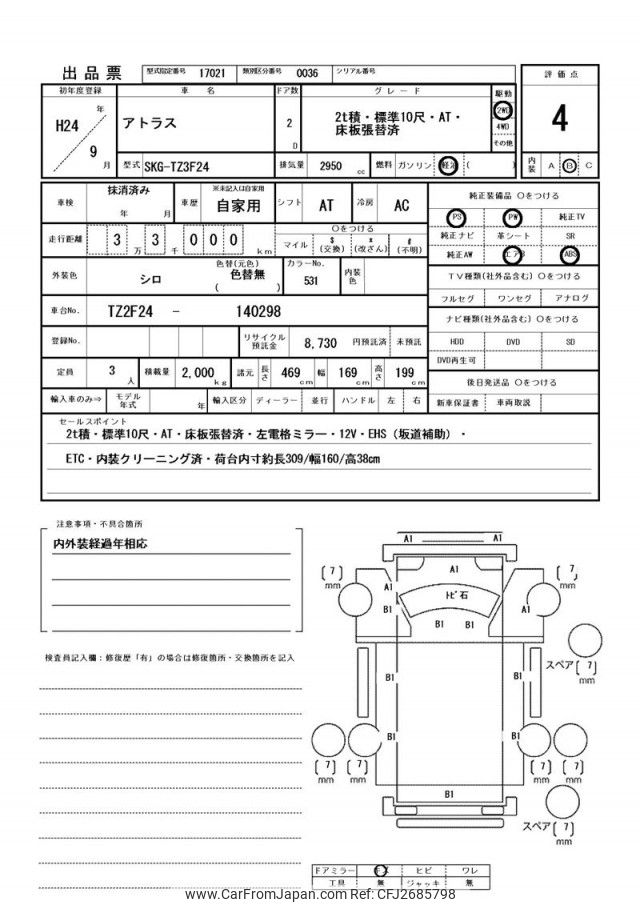 出品票 型式指定番号 17021 類別区分番号 0036 シリアル番号
評価点
初年度登録 車名 ドア数 グレード 駆動
H24 年 9 月
アトラス
2 D
2t積・標準10尺・AT・
床板張替済
2WD
4WD
その他
4
型式 SKG-TZ3F24 排気量 2950 cc 燃料 ガソリン 軽油 ( )
内装 A B C
車検 抹消済み 年 月 車歴 ※未記入は自家用 自家用 シフト AT 冷房 AC
走行距離 3 万 3 千 0 0 0 km
○をつける
マイル $(交換) *(改ざん) #(不明)
外装色 シロ 色替(元色) 色替無 ( ) カラーNo. 531 内装色
車台No. TZ2F24 - 140298
登録No. リサイクル預託金 8,730 円預託済 未預託
定員 3 人 積載量 2,000 kg 諸元 長さ 469 cm 幅 169 cm 高さ 199 cm
輸入車のみ⇒ モデル年式 年 輸入区分 ディーラー 並行 ハンドル 左 右
純正装備品 ○をつける
PS PW 純正TV
純正ナビ 革シート SR
純正AW エアB ABS
TV種類(社外品含む) ○をつける
フルセグ ワンセグ アナログ
ナビ種類(社外品含む) ○をつける
HDD DVD SD
DVD再生可
後日発送品 ○をつける
新車保証書 車両取説
セールスポイント
2t積・標準10尺・AT・床板張替済・左電格ミラー・12V・EHS（坂道補助）・
ETC・内装クリーニング済・荷台内寸約長309/幅160/高38cm
注意事項・不具合箇所
内外装経過年相応
検査員記入欄：修復歴「有」の場合は修復箇所・交換箇所を記入
A1 A1
A1
(7) mm
(7) mm
A1
B1
ﾄﾋﾞ石
A1
B1 B1
スペア (7) mm
B1 B1
B1 B1
(7) mm
(7) mm
(7) mm
(7) mm
B1
スペア (7) mm
ドアミラー キズ ヒビ ワレ
工具 無 ジャッキ 無
www.CarFromJapan.com Ref: CFJ2685798